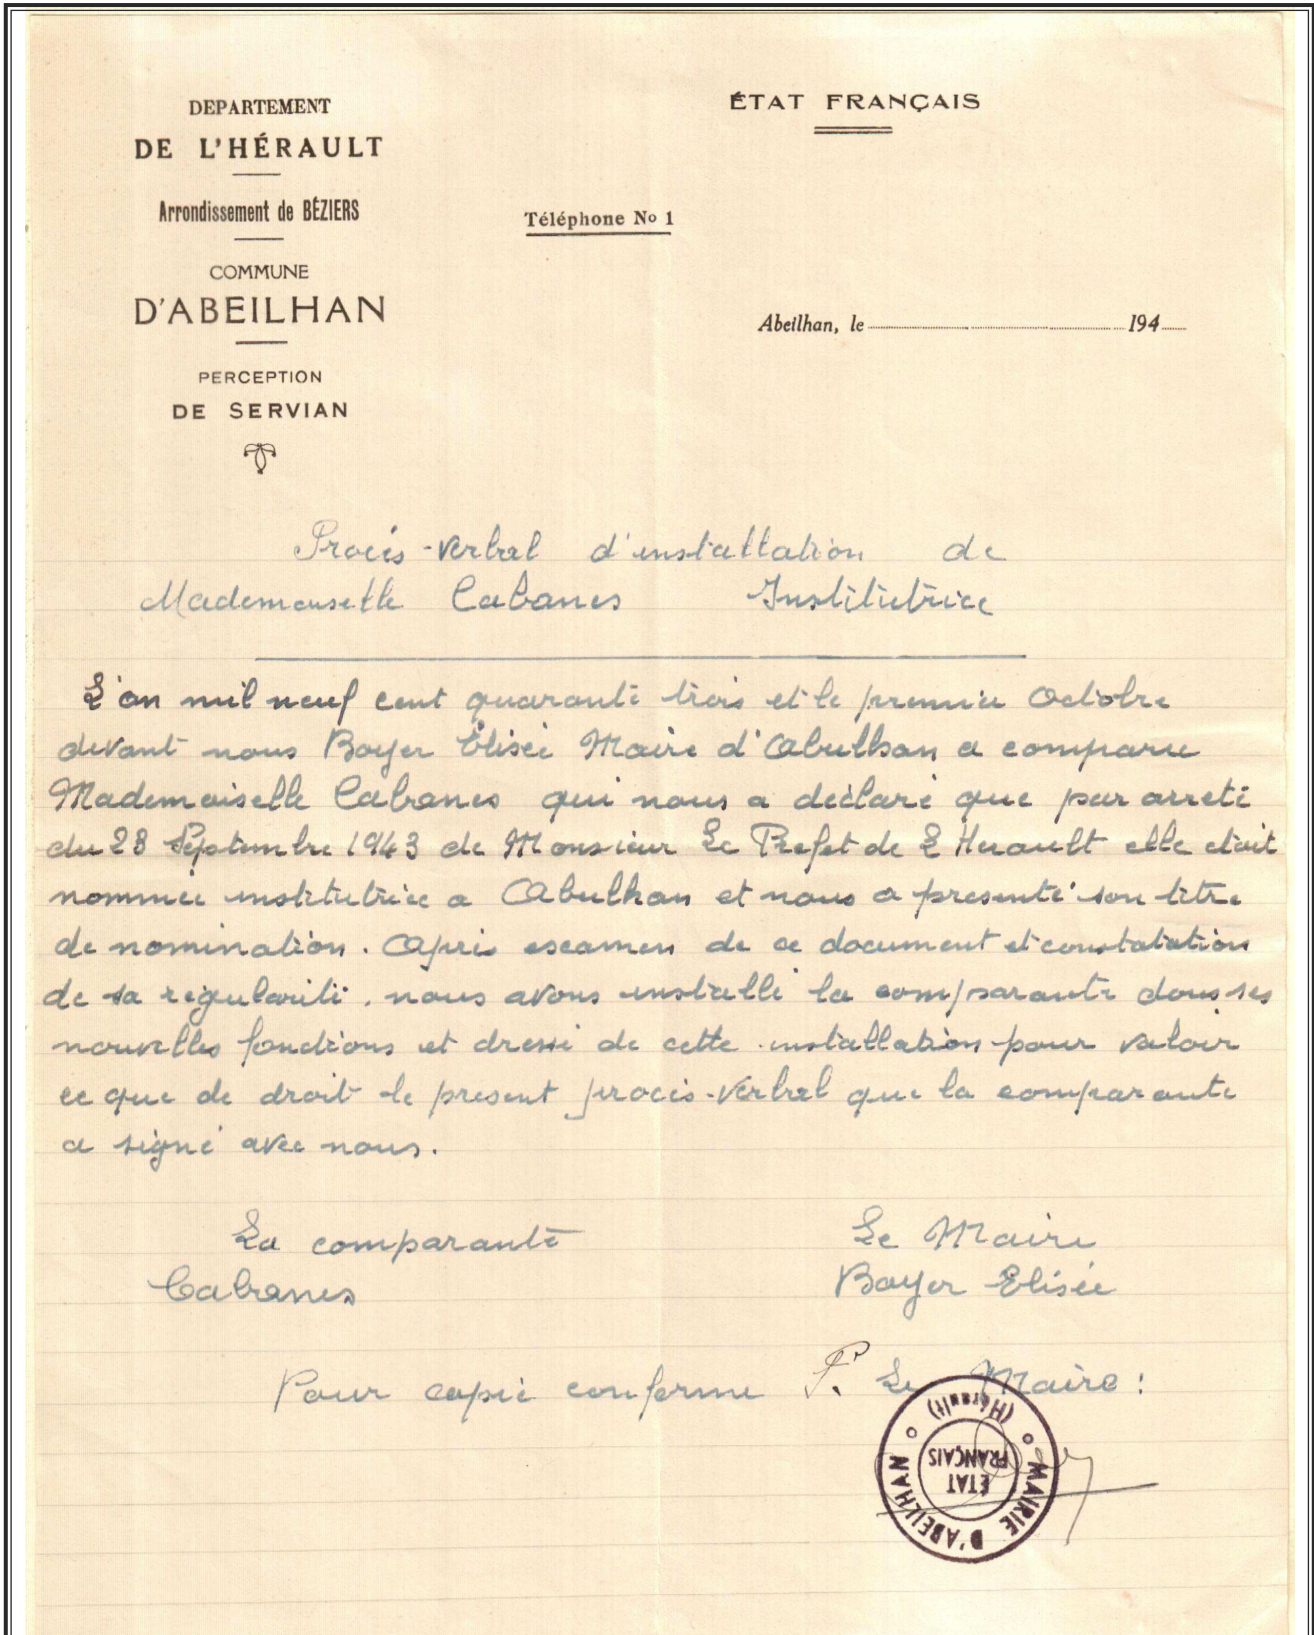 DEPARTEMENT
DE L'HÉRAULT
Arrondissement de BÉZIERS
COMMUNE
D'ABEILHAN
PERCEPTION
DE SERVIAN
ÉTAT FRANÇAIS
Téléphone No 1
Abeilhan, le 194
Procès-verbal d'installation de
Mademoiselle Cabanes Institutrice
L'an mil neuf cent quarante trois et le premier Octobre
devant nous Boyer Élisée Maire d'Abeilhan a comparu
Mademoiselle Cabanes qui nous a déclaré que par arreté
du 28 Septembre 1943 de Monsieur Le Prefet de L Herault elle etait
nommée institutrice a Abeilhan et nous a presenté son titre
de nomination. Après escamen de ce document et constatation
de sa régularité. nous avons installé la comparante dans ses
nouvelles fonctions et dressé de cette installation pour valoir
ce que de droit le present procès-verbal que la comparante
a signé avec nous.
La comparante
Cabanes
Le Maire
Boyer Elisée
Pour copie conforme P. Le Maire :
MAIRIE D'ABEILHAN
(Hérault)
ÉTAT
FRANÇAIS